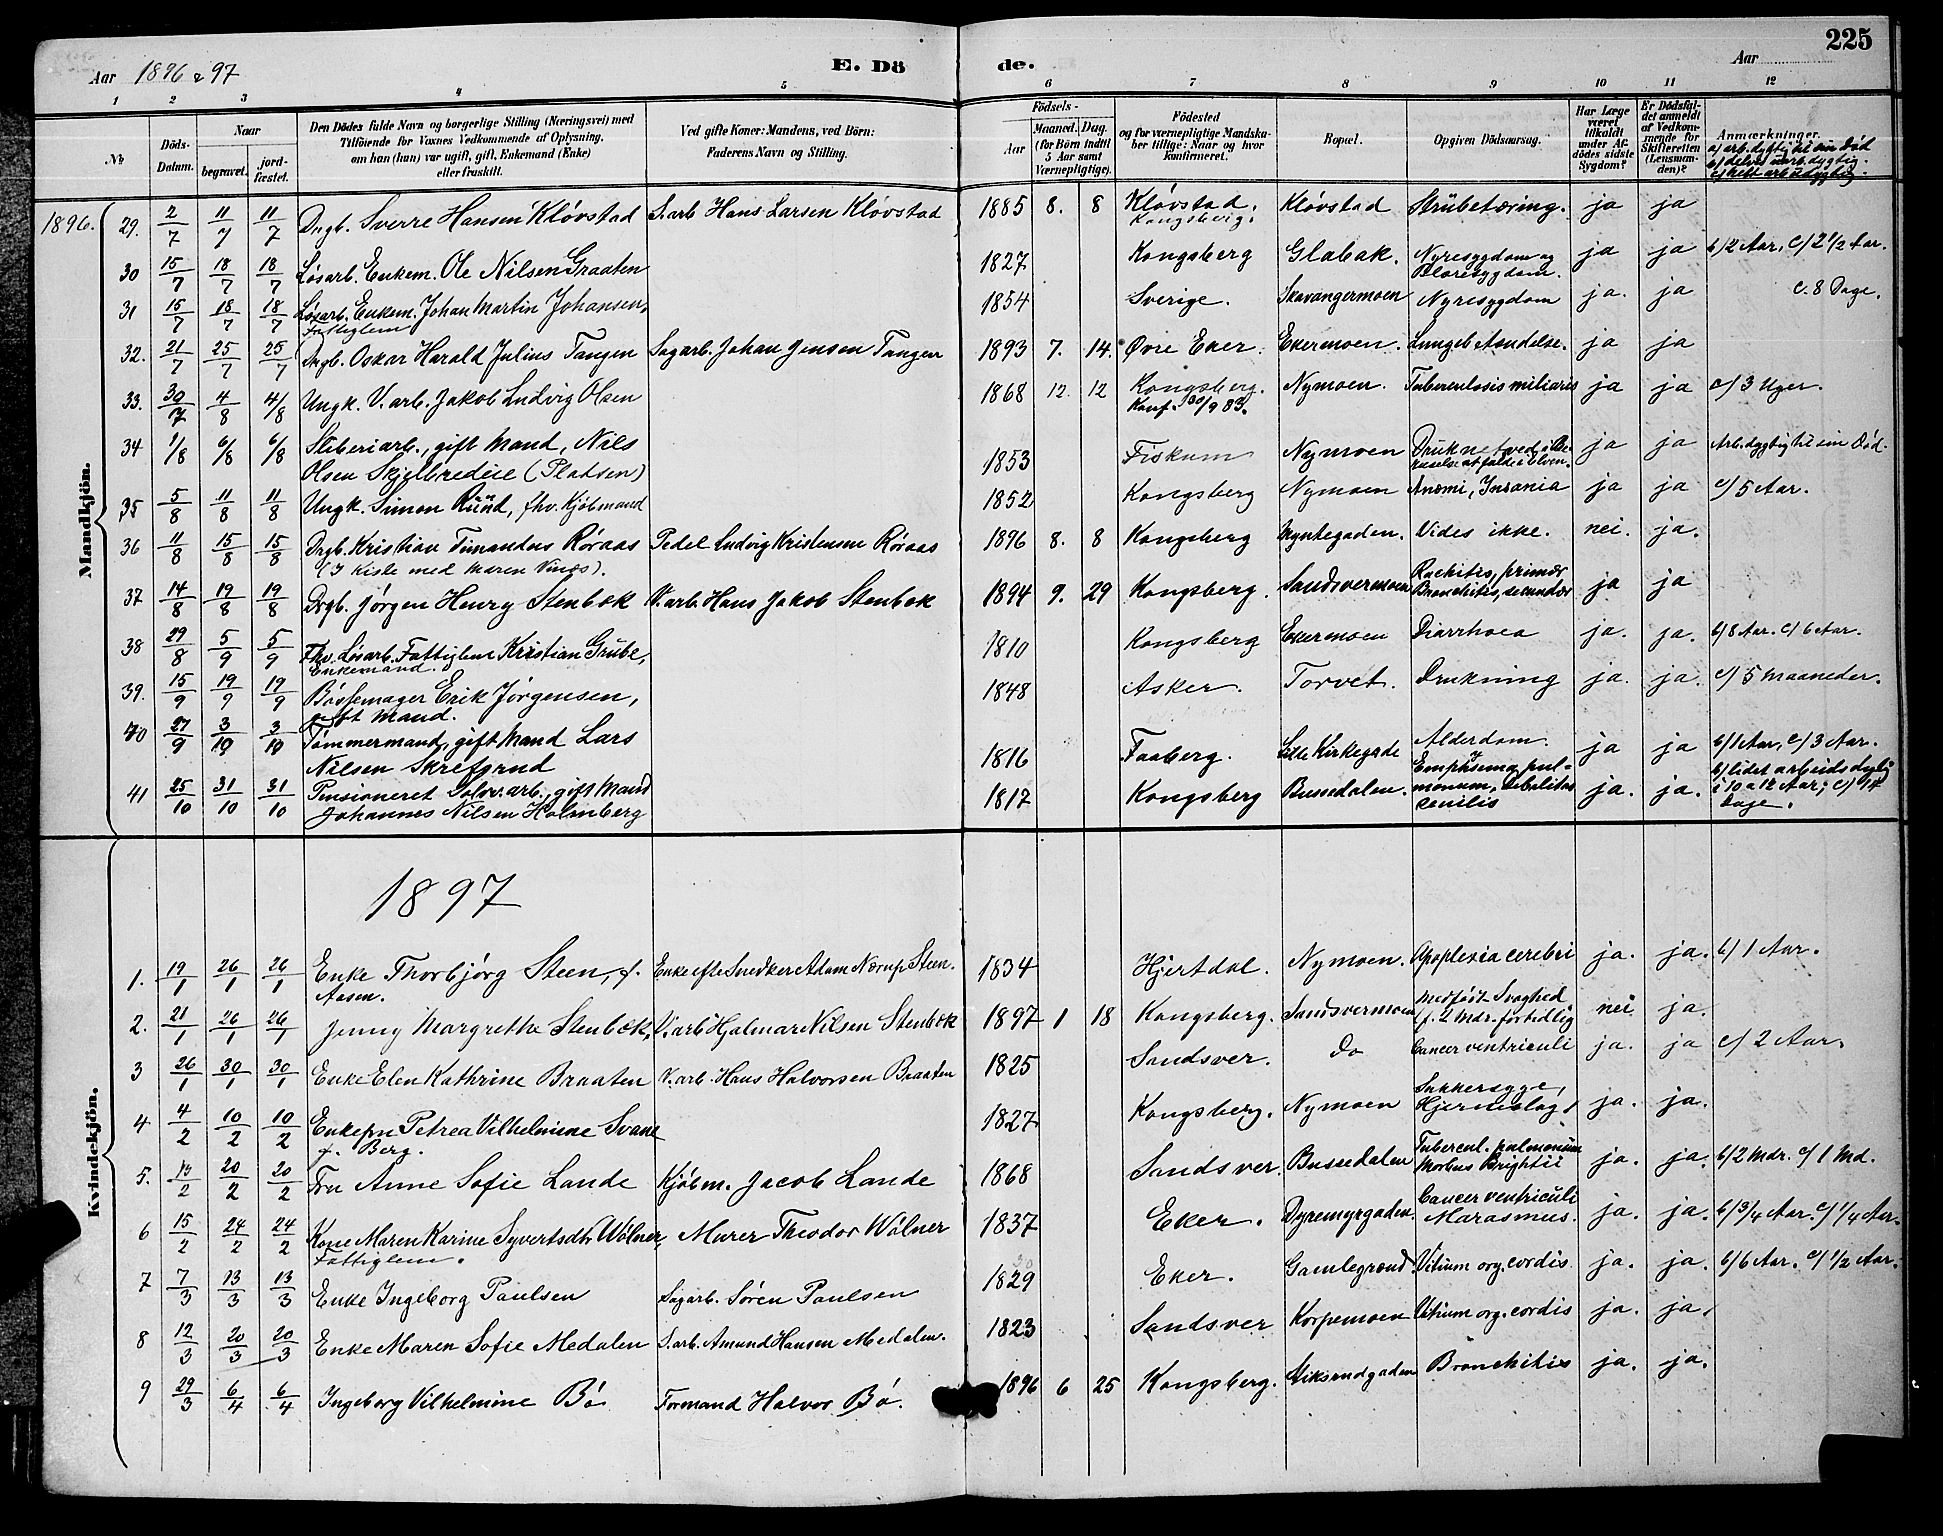 225
Aar 1896 & 97 E. Dö de. Aar
1 2 3 4 5 6 7 8 9 10 11 12
No Döds-Datum. Naar begravet. jord-fæstet. Den Dödes fulde Navn og borgerlige Stilling (Næringsvei) med Tilföiende for Voxnes Vedkommende af Oplysning, om han (hun) var ugift, gift, Enkemand (Enke) eller fraskilt. Ved gifte Koner: Mandens, ved Börn: Faderens Navn og Stilling. Födsels- Aar Maaned. Dag. (for Börn indtil 5 Aar samt Værnepligtige). Födested og for værnepligtige Mandskaber tillige: Naar og hvor konfirmeret. Bopæl. Opgiven Dödsaarsag. Har Læge været tilkaldt under Afdödes sidste Sygdom? Er Dödsfaldet anmeldt af Vedkommende for Skifteretten (Lensmanden)? Anmærkninger. a/ arb.dygtig til sin Död b/ delvis uarb.dygtig. c/ helt arb.udygtig.
Mandkjön.
1896. 29. 2/7 11/7 11/7 Dngb. Sverre Hansen Kløvstad S.arb. Hans Larsen Kløvstad 1885 8. 8 Kløvstad. Kongsberg. Kløvstad Strubetæring. ja ja
30 15/7 18/7 18/7 Løsarb. Enkem. Ole Nilsen Graaten 1827 Kongsberg Glabak. Nyresygdom og Blæresygdom. ja ja b/2 Aar, c/2 1/2 Aar.
31 15/7 18/7 18/7 Løsarb. Enkem. Johan Martin Johansen, Fattiglem 1854 Sverige. Skavangermoen Nyresygdom ja. ja c. 8 Dage.
32. 21/7 25/7 25/7 Dngb. Oskar Harald Julius Tangen Sagarb. Johan Jensen Tangen 1893 7. 14. Øvre Eker. Ekermoen. Lungebetændelse. ja ja
33. 30/7 4/8 4/8 Ungk. V.arb. Jakob Ludvig Olsen 1868 12. 12 Kongsberg. Konf. 30/9 83. Nymoen. Tuberculosis miliaris ja ja c/ 3 Uger.
34 1/8 6/8 6/8 Sliberiarb., gift Mand, Nils Olsen Skjelbredeie (Pladsen) 1853 Fiskum Nymoen Druknet ved i Beruselse at falde i Elven. ja ja Arb.dygtig til sin Död.
35 5/8 11/8 11/8 Ungk. Simon Ruud, fhv. Kjöbmand 1852 Kongsberg Nymoen Anæmi, Insania ja ja c/ 5 Aar.
36 11/8 15/8 15/8 Dngb. Kristian Timandus Røraas (I Kiste med Maren Vinæs). Pedel Ludvig Kristensen Røraas 1896 8. 8 Kongsberg Myntegaden. Vides ikke. nei. ja.
37 14/8 19/8 19/8 Drgb. Jørgen Henry Stenbæk V.arb. Hans Jakob Stenbæk 1894 9. 29 Kongsberg. Sandsvermoen Rachitis, primær Bronchitis, secundær ja ja
38 29/8 5/9 5/9 Fhv. Løsarb. Fattiglem Kristian Grube, Enkemand. 1810 Kongsberg Ekermoen Diarrhoea ja. ja. b/8 Aar. c/ 6 Aar.
39. 15/9 19/9 19/9 Bøssemager Erik Jørgensen, gift Mand. 1848 Asker. Torvet. Drukning ja. ja. c/ 5 Maaneder.
40 27/9 3/10 3/10 Tømmermand, gift Mand Lars Nilsen Skrefsrud 1816 Faaberg. Lille Kirkegade Alderdom. ja ja b/1 Aar, c/3 Aar.
41 25/10 31/10 31/10 Pensioneret Sølvv.arb., gift Mand Johannes Nilsen Holmberg 1817 Kongsberg Bussedalen. Emphysema pulmonum, Debilitas senilis ja. ja. b/ lidet arbeidsdygtig i 10 a 12 Aar; c/ 14 Dage.
1897
Kvindekjön.
1. 19/1 26/1 26/1 Enke Thorbjørg Steen, f. Aasen. Enke efter Snedker Adam Nærup Steen. 1834 Hjertdal. Nymoen. Apoplexia cerebri ja. ja. b/ 1 Aar.
2. 21/1 26/1 26/1 Jenny Margrethe Stenbæk, V.arb. Hjalmar Nilsen Stenbæk 1897 1 18 Kongsberg. Sandsvermoen Medfødt Svaghed (f. 2 Mdr. fortidlig nei ja.
3 26/1 30/1 30/1 Enke Elen Kathrine Braaten V.arb. Hans Halvorsen Braaten 1825 Sandsver. do Cancer ventriculi ja. ja c/ 2 Aar.
4 4/2 10/2 10/2 Enkefru Petrea Vilhelmine Svane f. Berg. 1827 Kongsberg. Nymoen Sukkersyge, Hjerneslag, ja. ja.
5. 13/2 20/2 20/2 Fru Anne Sofie Lande Kjøbm. Jacob Lande 1868 Sandsver Bussedalen Tubercul. pulmonum Morbus Brightii ja. ja. b/2 Mdr. c/ 1 Md.
6 15/2 24/2 24/2 Kone Maren Karine Syvertsdtr. Wølner, Fattiglem. Murer Theodor Wølner 1837 Eker. Dyremyrgaden. Cancer ventriculi Marasmus. ja. ja. b/3/4 Aar. c/ 1/4 Aar.
7 7/3 13/3 13/3 Enke Ingeborg Paulsen Sagarb. Søren Paulsen 1829 Eker. Gamlegrænd Vitium org. cordis. ja. ja. b/6 Aar. c/ 1/2 Aar.
8 12/3 20/3 20/3 Enke Maren Sofie Medalen S.arb. Amund Hansen Medalen. 1823 Sandsver Korpemoen Vitium org. cordis ja. ja.
9 29/3 6/4 6/4 Ingeborg Vilhelmine Bø Formand Halvor Bø. 1896 6 25 Kongsberg. Hiksrudgaden Bronchitis ja. ja.